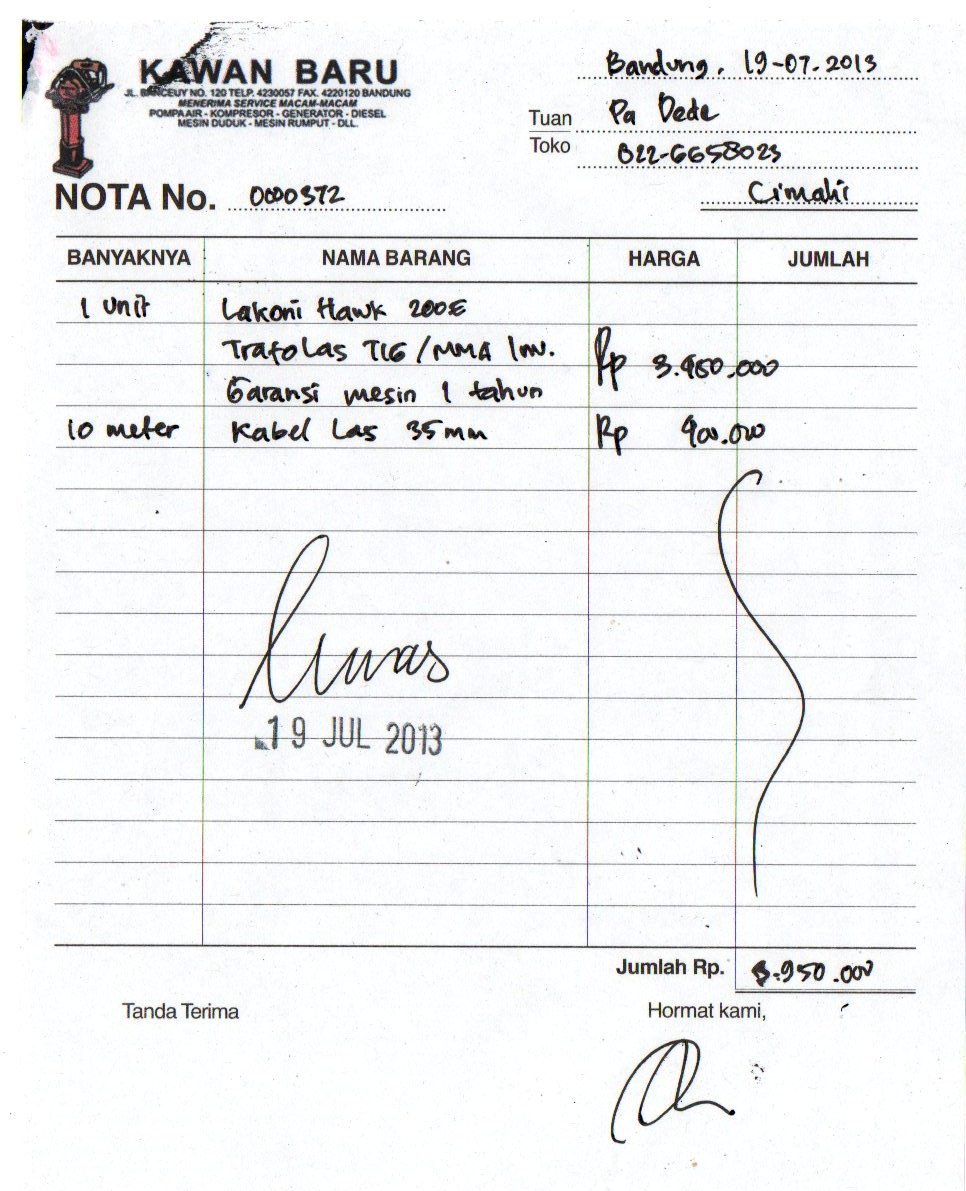 KAWAN BARU
JL. BANCEUY NO. 120 TELP. 4230057 FAX. 4220120 BANDUNG
MENERIMA SERVICE MACAM-MACAM
POMPA AIR - KOMPRESOR - GENERATOR - DIESEL
MESIN DUDUK - MESIN RUMPUT - DLL.
Bandung, 19-07-2013
Tuan Pa Dede
Toko 022-6658023
Cimahi
NOTA No. 0000372
BANYAKNYA NAMA BARANG HARGA JUMLAH
1 unit Lakoni Hawk 200E
Trafo Las TIG/MMA Inv. Rp 3.950.000
Garansi mesin 1 tahun
10 meter Kabel Las 35mm Rp 900.000
Lunas
19 JUL 2013
Jumlah Rp. .950.000
Tanda Terima Hormat kami,